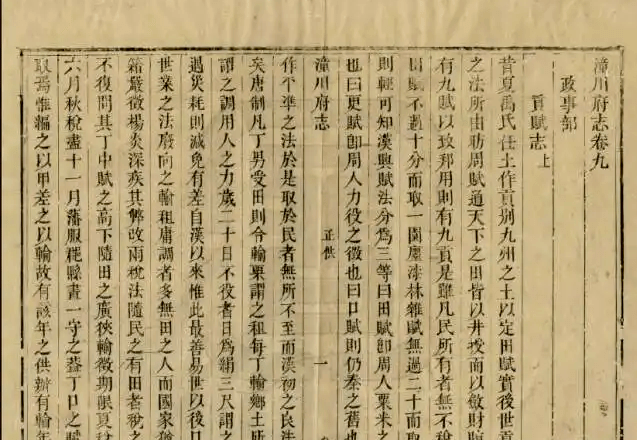 潼川府志卷九
政事部
貢賦志上
昔夏禹氏任土作貢別九州之土以定田賦實後世貢
之法所由昉周賦通天下之田皆以井授而以斂財賄
有九賦以致邦用則有九貢是雖凡民所有者無不稅
田賦不過十分而取一園廛漆林雜賦無過二十而取
則輕可知漢興賦法分為三等曰田賦卽周人粟米之
也曰更賦卽周人力役之徵也曰口賦則仍秦之舊也
潼川府志
正供
一
作平準之法於是取於民者無所不至而漢初之良法
矣唐制凡丁男受田則令輸粟謂之租每丁輸鄉土所
謂之調用人之力歲二十日不役者日為絹三尺謂之
遇災耗則減免有差自漢以來惟此最善易世以後口
世業之法廢向之輸租庸調者多無田之人而國家猶
籍嚴徵楊炎深疾其弊改兩稅法隨民之有田者稅之
不復問其丁中賦之高下隨田之廣狹輸徵期限夏稅
六月秋稅盡十一月藩服縣盡一守之蓋丁口之賦
取焉惟編之以甲差之以輸故有該年之供辦有輸年